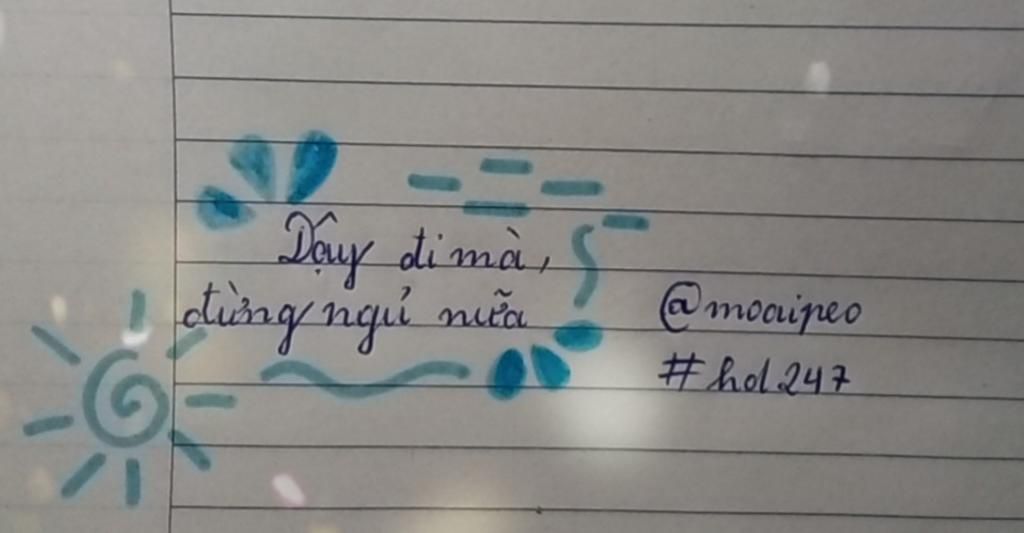 Dậy đi mà,
đừng ngủ nữa
@moaipeo
#hd247